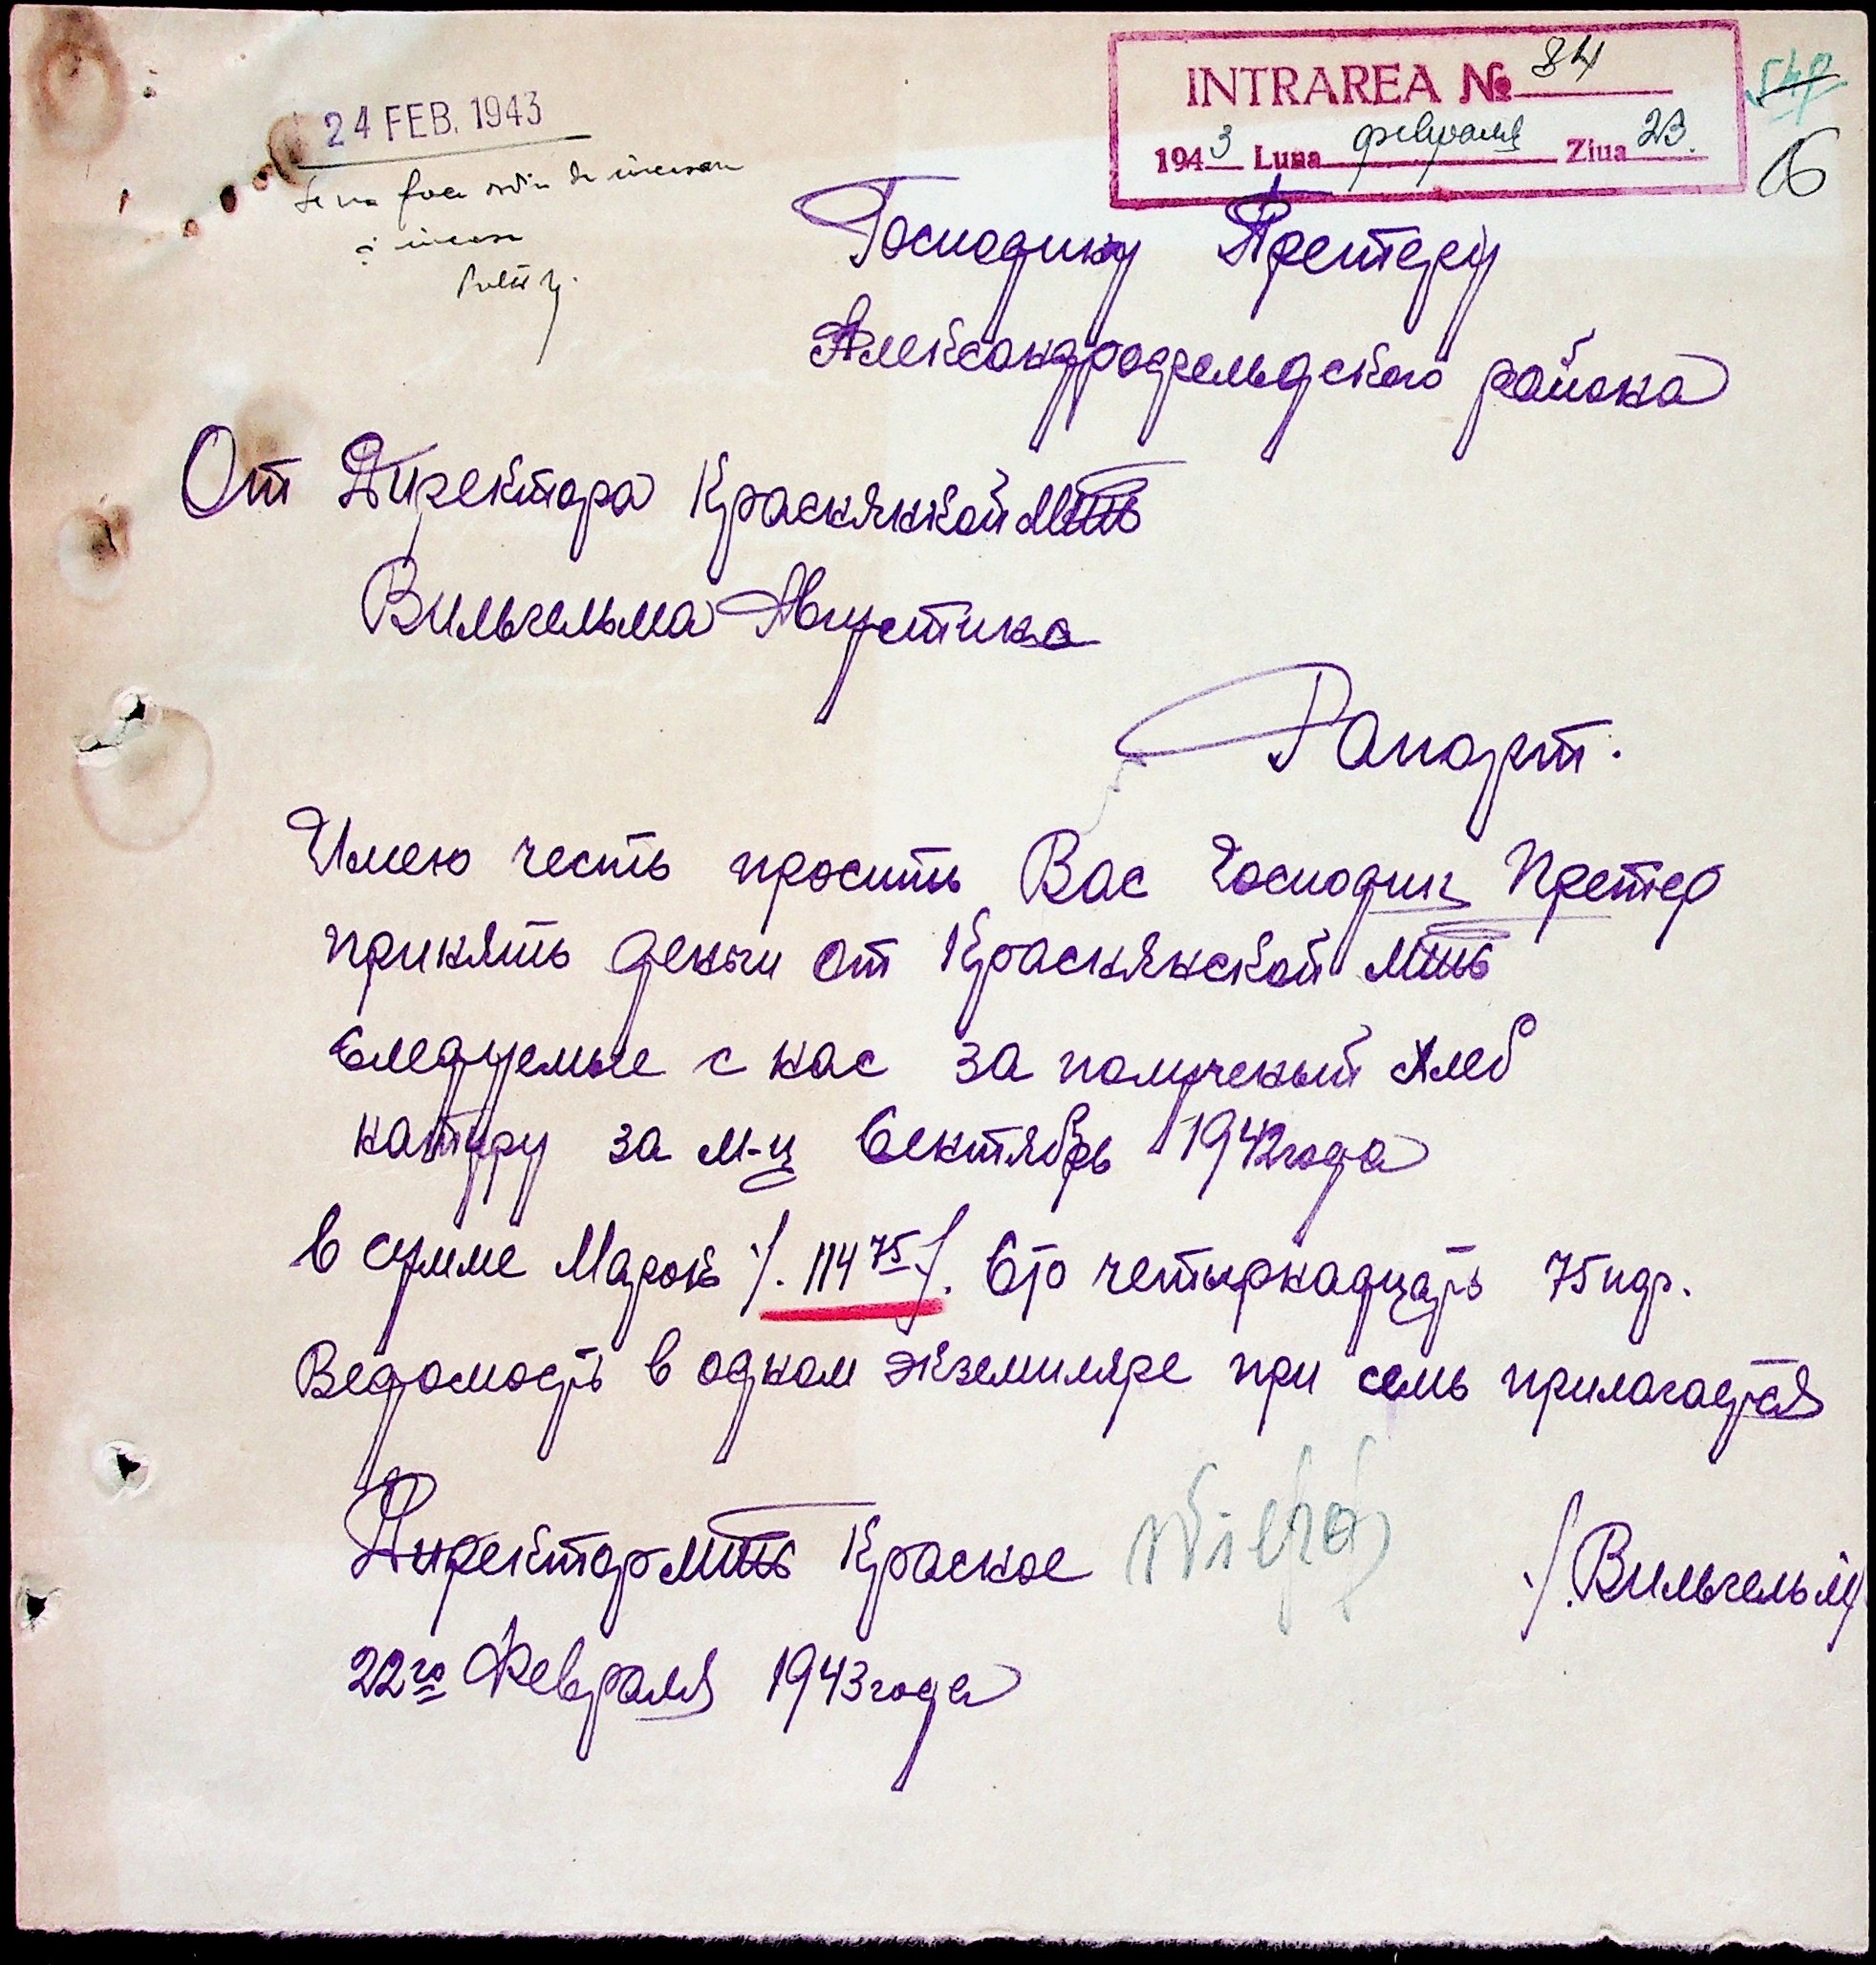 INTRAREA № 84
1943 Luna февраля Ziua 23.
16
24 FEB. 1943
Se va face ordin de incasare
si incasa
Господину Претеру
Александрофельдского района
От Директора Краснянкой МТС
Вильгельма Августина
Рапорт.
Имею честь просить Вас Господин Претер
принять деньги от Краснянской МТС
следуемые с нас за полученый хлеб
натуру за м-ц Сентябрь 1942 года
в сумме Марок /. 114 75 /. Сто четырнадцать 75 пф.
Ведомость в одном экземпляре при семь прилагается
Директор МТС Красное /. Вильгельм/
22го Февраля 1943 года